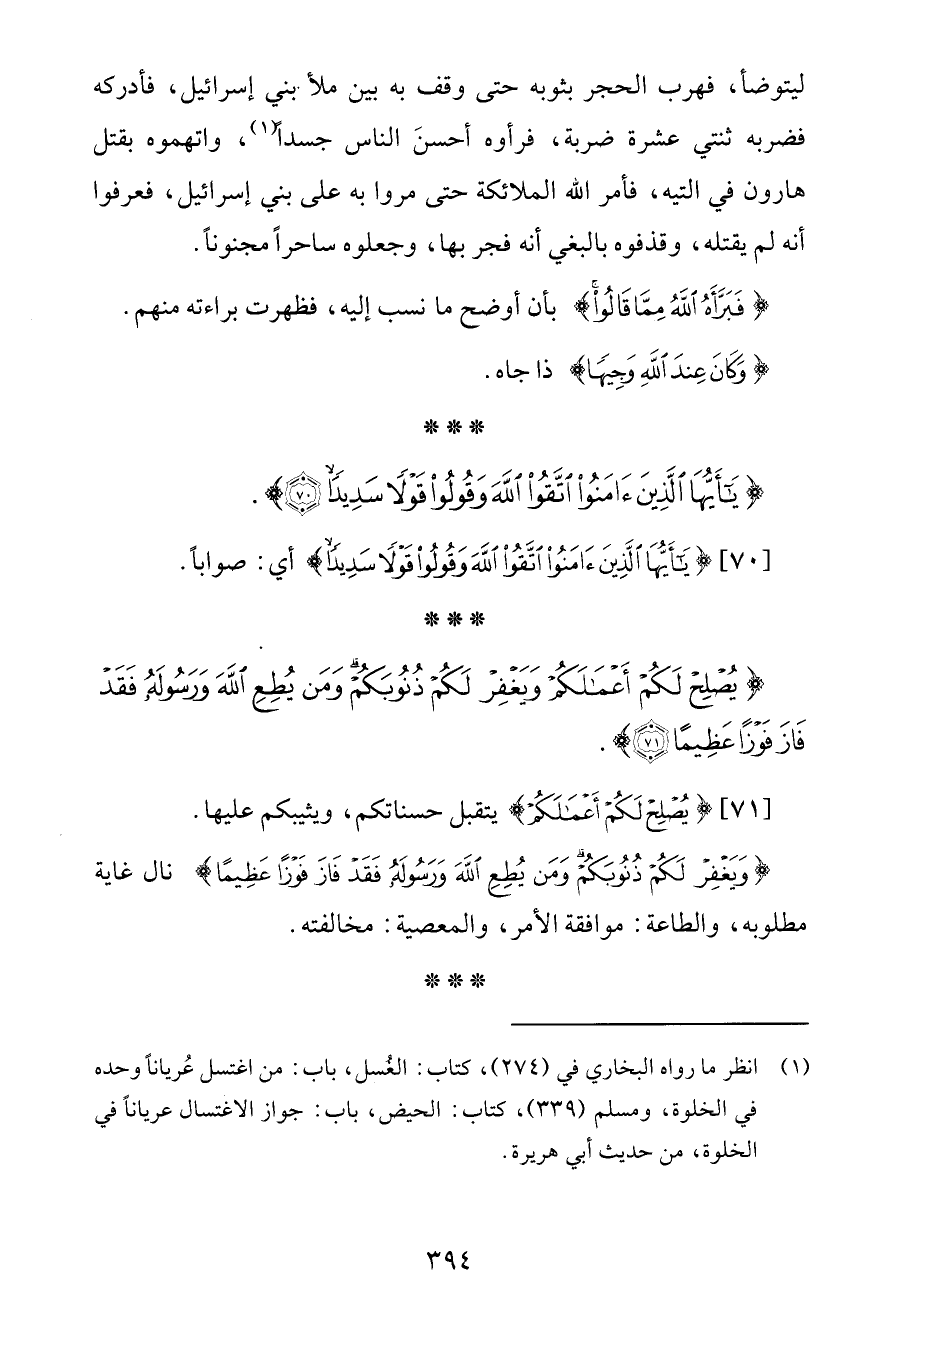 ليتوضأ، فهرب الحجر بثوبه حتى وقف به بين ملأ بني إسرائيل، فأدركه
فضربه ثنتي عشرة ضربة، فرأوه أحسنَ الناس جسداً(١)، واتهموه بقتل
هارون في التيه، فأمر الله الملائكة حتى مروا به على بني إسرائيل، فعرفوا
أنه لم يقتله، وقذفوه بالبغي أنه فجر بها، وجعلوه ساحراً مجنوناً.
﴿فَبَرَّأَهُ ٱللَّهُ مِمَّا قَالُواْۚ﴾ بأن أوضح ما نسب إليه، فظهرت براءته منهم.
﴿وَكَانَ عِندَ ٱللَّهِ وَجِيهٗا﴾ ذا جاه.
***
﴿يَٰٓأَيُّهَا ٱلَّذِينَ ءَامَنُواْ ٱتَّقُواْ ٱللَّهَ وَقُولُواْ قَوۡلٗا سَدِيدٗاۙ ٧٠﴾.
[٧٠] ﴿يَٰٓأَيُّهَا ٱلَّذِينَ ءَامَنُواْ ٱتَّقُواْ ٱللَّهَ وَقُولُواْ قَوۡلٗا سَدِيدٗاۙ﴾ أي: صواباً.
***
﴿يُصۡلِحۡ لَكُمۡ أَعۡمَٰلَكُمۡ وَيَغۡفِرۡ لَكُمۡ ذُنُوبَكُمۡۗ وَمَن يُطِعِ ٱللَّهَ وَرَسُولَهُۥ فَقَدۡ
فَازَ فَوۡزًا عَظِيمًا ٧١﴾.
[٧١] ﴿يُصۡلِحۡ لَكُمۡ أَعۡمَٰلَكُمۡ﴾ يتقبل حسناتكم، ويثيبكم عليها.
﴿وَيَغۡفِرۡ لَكُمۡ ذُنُوبَكُمۡۗ وَمَن يُطِعِ ٱللَّهَ وَرَسُولَهُۥ فَقَدۡ فَازَ فَوۡزًا عَظِيمًا﴾ نال غاية
مطلوبه، والطاعة: موافقة الأمر، والمعصية: مخالفته.
***
(١) انظر ما رواه البخاري في (٢٧٤)، كتاب: الغُسل، باب: من اغتسل عُرياناً وحده
في الخلوة، ومسلم (٣٣٩)، كتاب: الحيض، باب: جواز الاغتسال عرياناً في
الخلوة، من حديث أبي هريرة.
٣٩٤